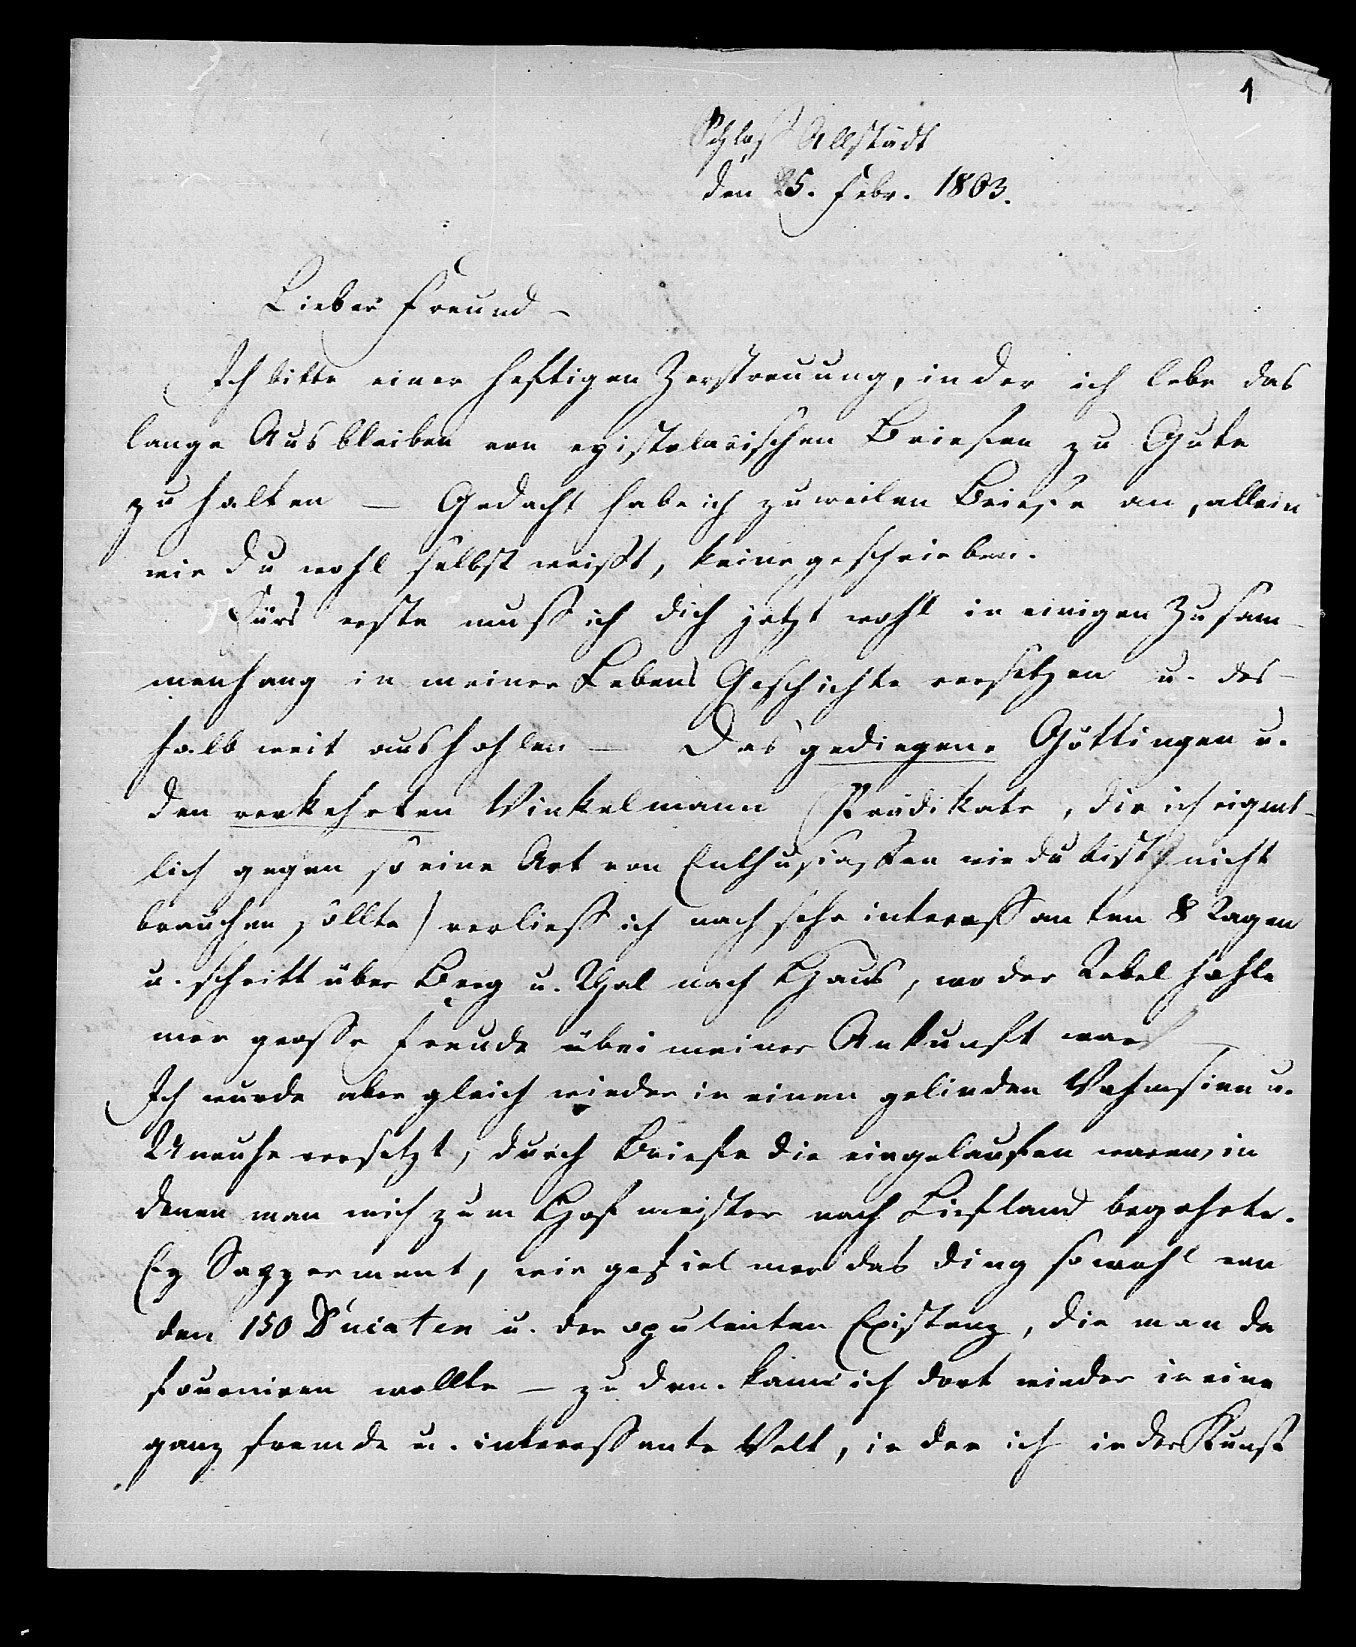 1
Schloß Allstädt
den 25. Febr. 1803.
Lieber Freund –
Ich bitte einer heftigen Zerstreuung, in der ich lebe das
lange Ausbleiben von epistolarischen Briefen zu Gute
zu halten — Gedacht habe ich zuweilen Briefe an, allein
wie du wohl selbst weißt, keine geschrieben.
Fürs erste muß ich dich jetzt wohl in einigen Zusam-
menhang in meiner Lebens Geschichte versetzen u. des-
halb weit aushohlen — Das gediegene Göttingen u.
den verkehrten Winkelmann (Prädikate, die ich eigent-
lich gegen so eine Art von Enthusiasten wie du bist nicht
brauchen sollte) verließ ich nach sehr interessanten 8 Tagen
u. schritt über Berg u. Thal nach Haus, wo der
mer große Freude über meiner Ankunft war —
Ich wurde aber gleich wieder in einen gelinden Wahnsinn u.
Unruhe versetzt, durch Briefe die eingelaufen waren, in
denen man mich zum Hofmeister nach Liefland begehrte.
Ey Sapperment, wie gefiel mer das Ding sowohl von
den 150 Ducaten u. der opulenten Existenz, die man da
fourniren wollte — zu dem kam ich dort wieder in eine
ganz fremde u. interessante Welt, in der ich in der Kunst